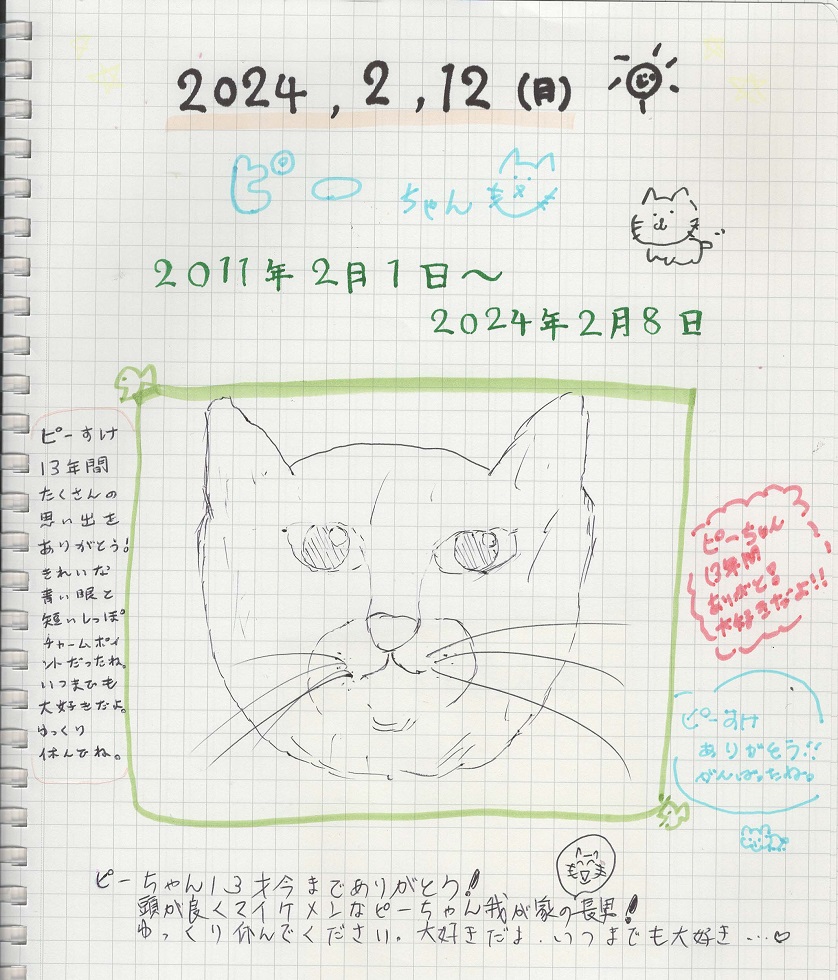 2024,2,12(月)
ピーちゃん
2011年2月1日～
2024年2月8日
ピーすけ
13年間
たくさんの
思い出を
ありがとう!
きれいな
青い眼と
短いしっぽ。
チャームポイ
ントだったね。
いつまでも
大好きだよ。
ゆっくり
休んでね。
ピーちゃん
13年間
ありがとう
大好きだよ!!
ピーすけ
ありがとう!!
がんばったね。
ピーちゃん13才今までありがとう!
頭が良くてイケメンなピーちゃん我が家の長男!
ゆっくり休んでください。大好きだよ.いつまでも大好き…♡